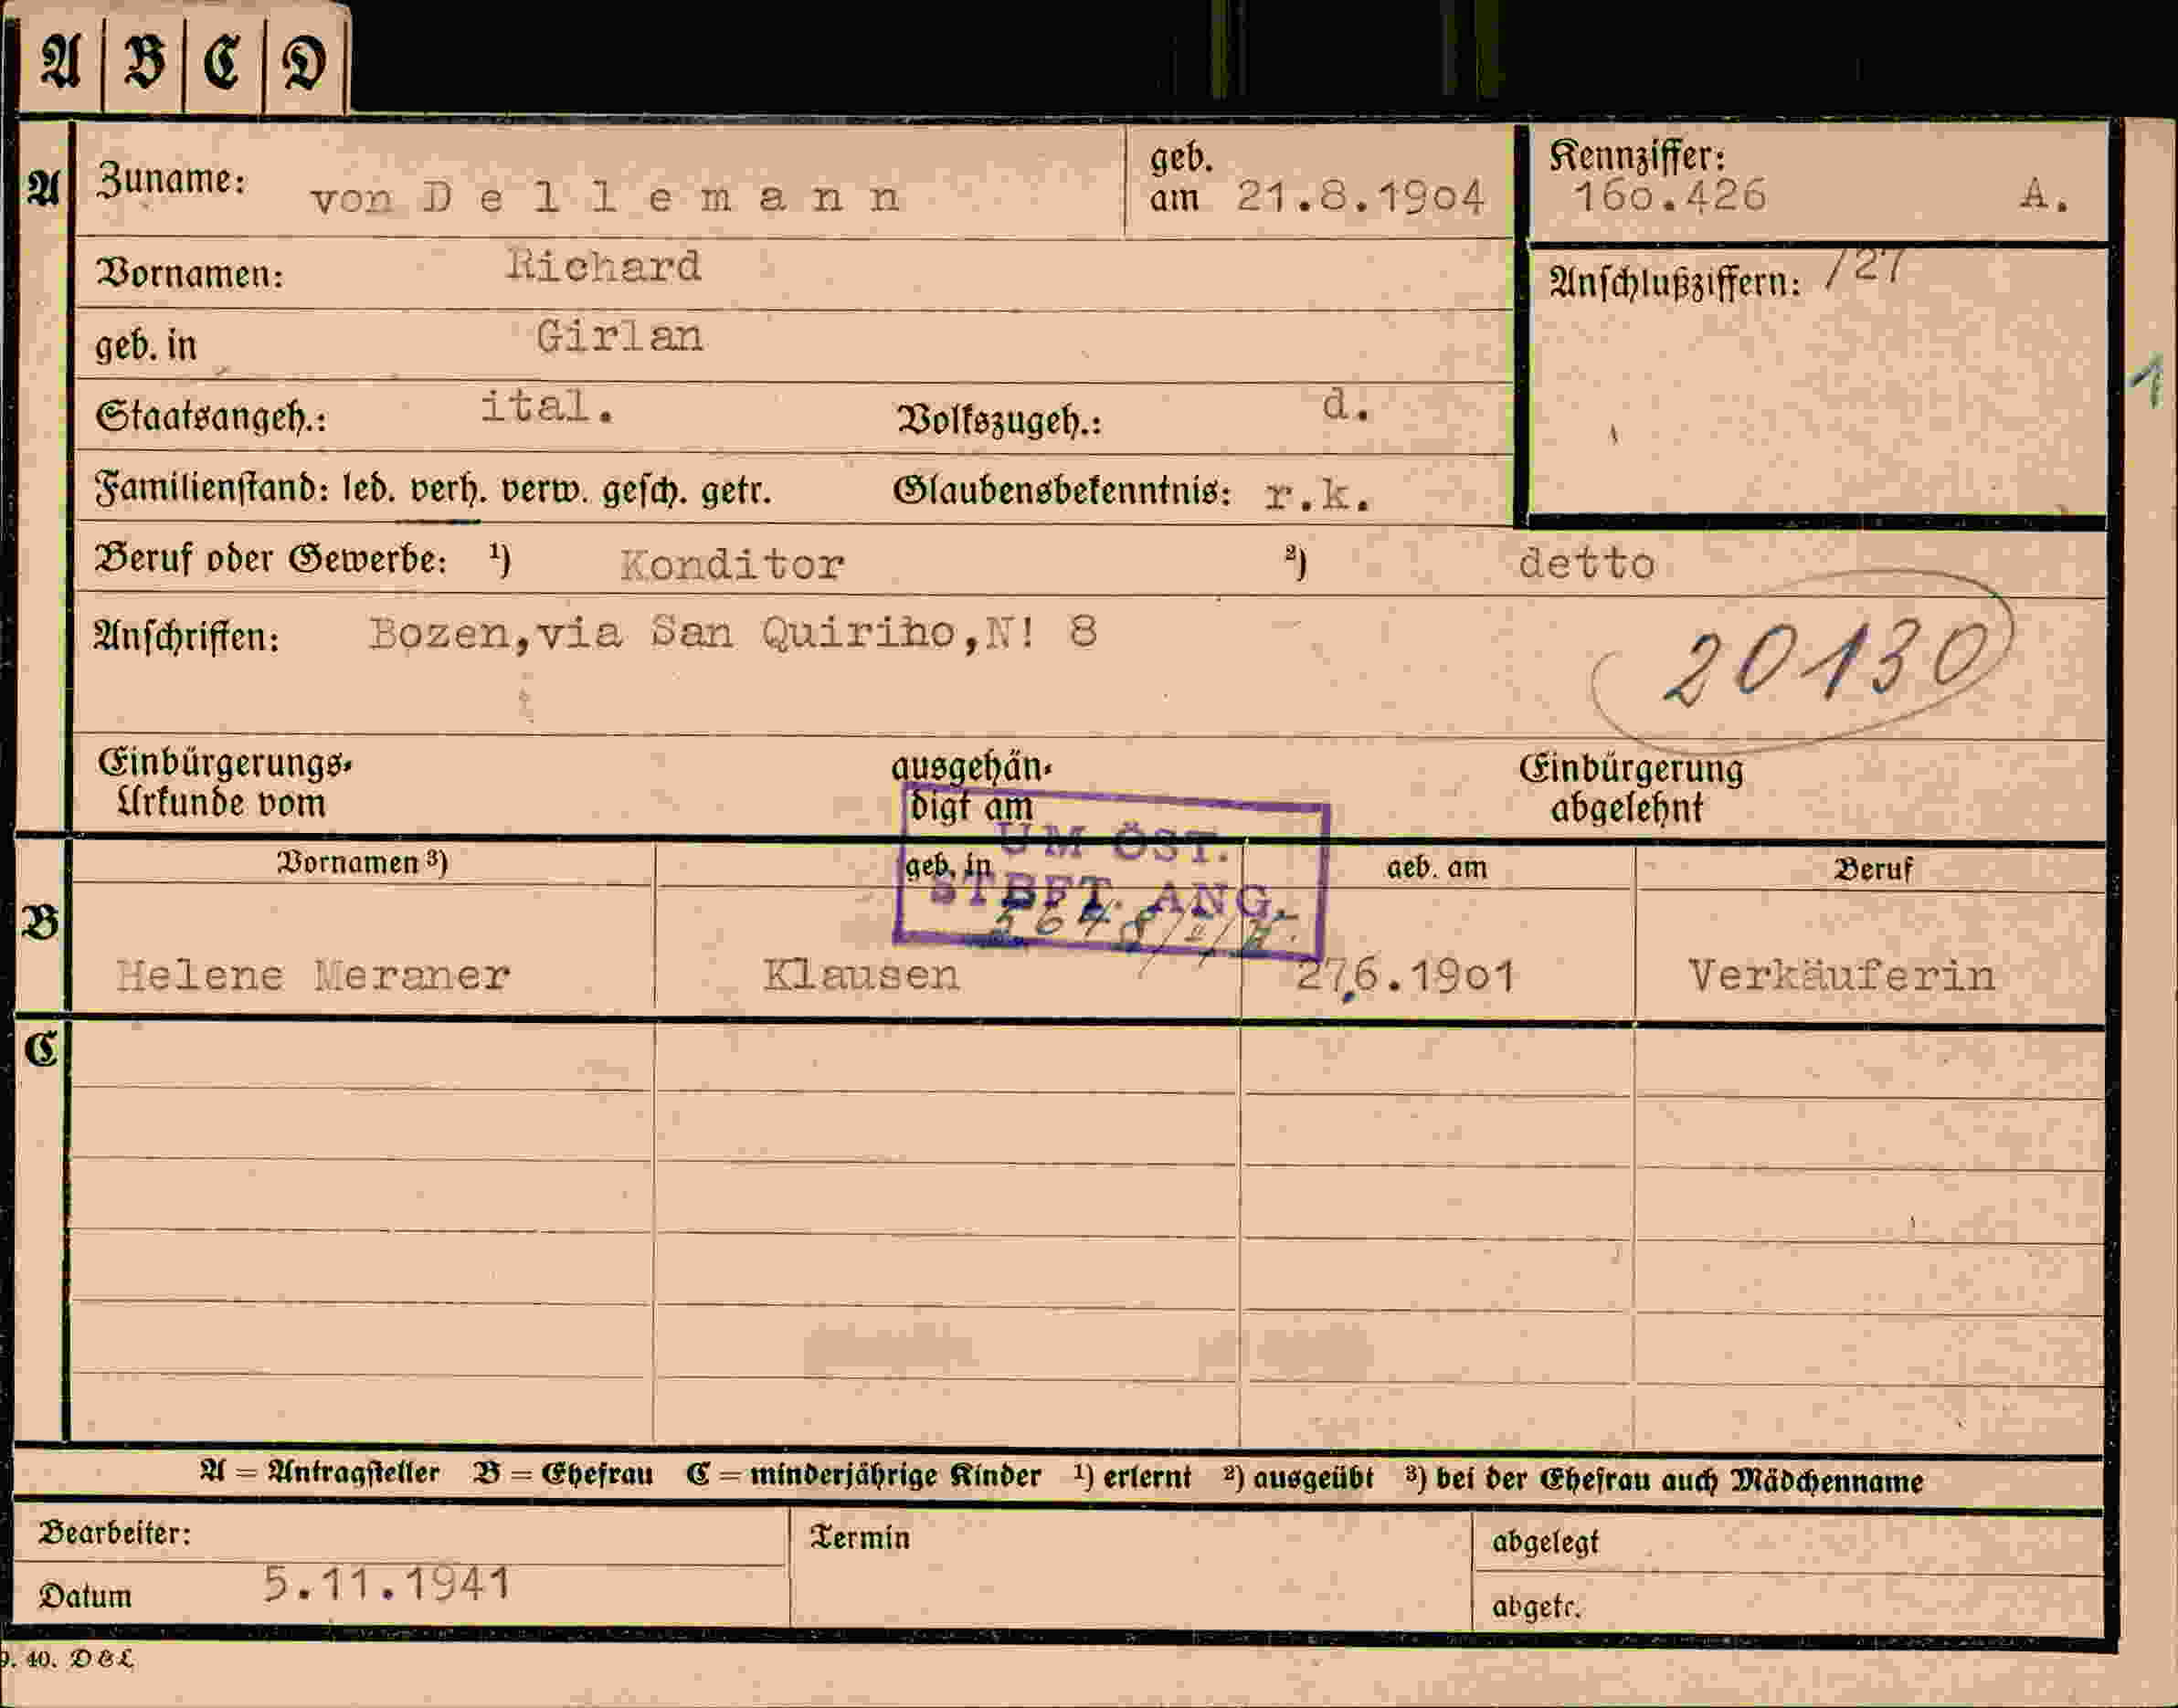 A B C D
A Zuname: von D e l l e m a n n geb. am 21.8.1904 Kennziffer: 160.426 A.
Vornamen: Richard Anschlußziffern: /27
geb. in Girlan
1
Staatsangeh.: ital. Volkszugeh.: d.
Familienstand: led. verh. verw. gesch. getr. Glaubensbekenntnis: r.k.
Beruf oder Gewerbe: ¹) Konditor ²) detto
Anschriften: Bozen,via San Quirino,N! 8
20130
Einbürgerungs- ausgehän- Einbürgerung
Urkunde vom digt am abgelehnt
UM ÖST.
STBFT. ANG.
B Vornamen ³) geb. in geb. am Beruf
Helene Meraner Klausen 27.6.1901 Verkäuferin
C
A = Antragsteller B = Ehefrau C = minderjährige Kinder ¹) erlernt ²) ausgeübt ³) bei der Ehefrau auch Mädchenname
Bearbeiter: Termin abgelegt
Datum 5.11.1941 abgetr.
9. 40. D&L